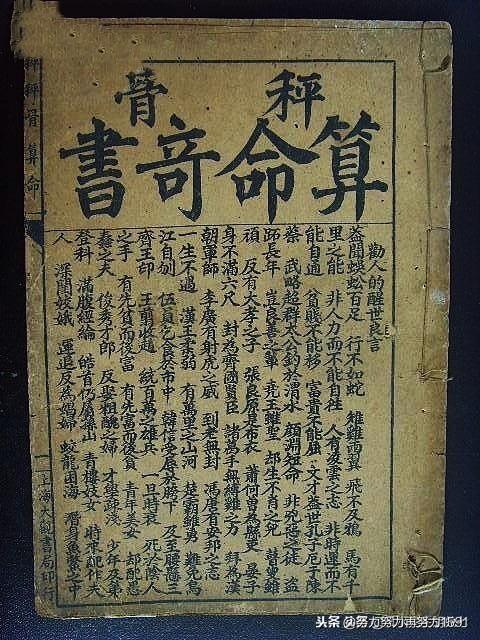 秤骨
算命奇書
秤骨算命
勸人的醒世良言
蓋聞蜈蚣百足 行不如蛇 雄雞兩翼 飛不及鴉 馬有千
里之能 非人力而不能自往 人有凌雲之志 非時運而不
能自通 貧賤不能移 富貴不能屈 文才蓋世孔子厄于陳
蔡 武略超群太公釣於渭水 顏淵短命 非兇惡之徒 盜
跖長年 豈良善之輩 堯王雖聖 却生不肖之兒 瞽叟雖
頑 反有大孝之子 張良原是布衣 蕭何曾為縣吏 晏子
身不滿六尺 封為齊國賢臣 諸葛手無縛雞之力 拜為漢
朝軍師 李廣有射虎之威 到老無封 馮唐有安邦之志
一生不遇 漢王柔弱 有萬里之山河 楚霸雖勇 難免烏
江自刎 伍員乞食於市中 韓信受辱於胯下 及至腰懸三
齊王印 王翦收趙 統百萬之雄兵 一旦時衰 死於陰人
之手 有先貧而後富 有先富而後貧 青年美女 却配愚
蠢之夫 俊秀才郎 反娶粗醜之婦 才學淺 少年及第
登科 滿腹經綸 皓首仍屬孫山 青樓妓女 時來配作夫
人 深閨姣娥 運退反為娼婦 蛟龍困海 潛身魚鱉之中
上海大書局印行
头条 @努力努力再努力1591